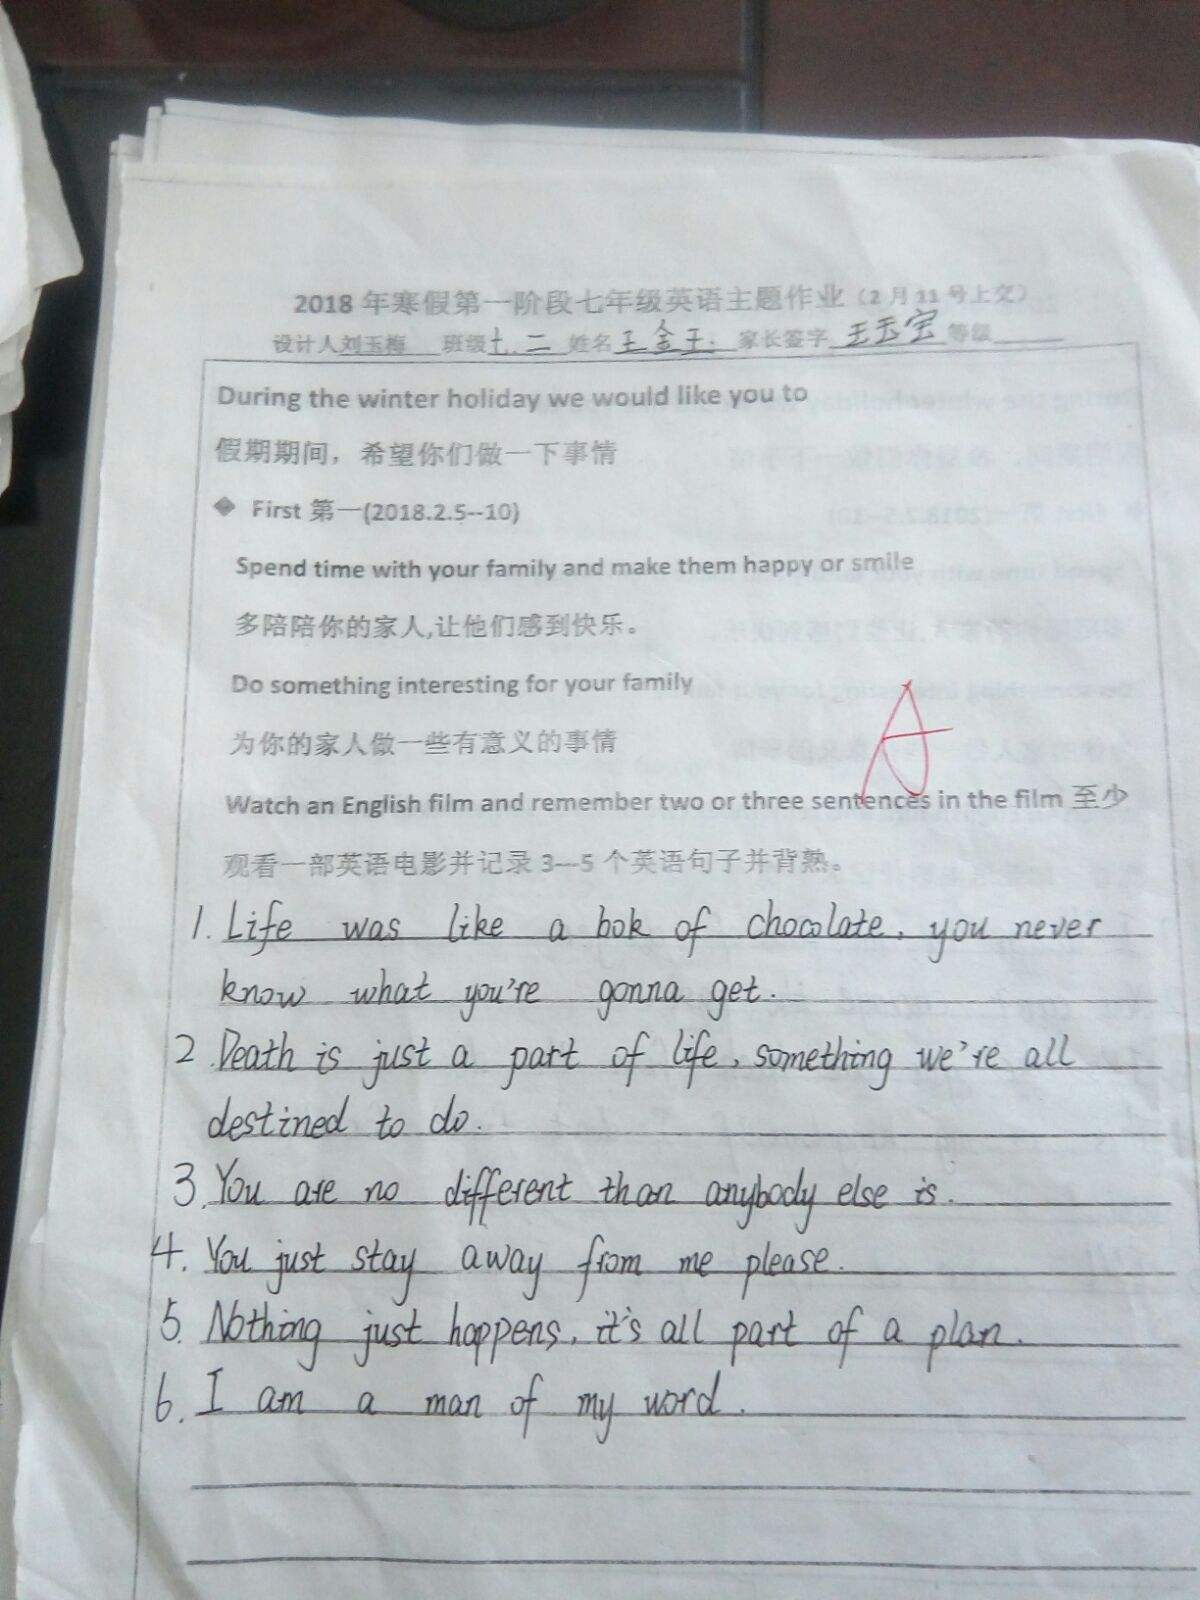 2018 年寒假第一阶段七年级英语主题作业（2 月 11 号上交）
设计人刘玉梅 班级七.二 姓名王金玉. 家长签字 王玉宝 等级
During the winter holiday we would like you to
假期期间，希望你们做一下事情
◆ First 第一(2018.2.5--10)
Spend time with your family and make them happy or smile
多陪陪你的家人,让他们感到快乐。
Do something interesting for your family
为你的家人做一些有意义的事情
A
Watch an English film and remember two or three sentences in the film 至少
观看一部英语电影并记录 3—5 个英语句子并背熟。
1. Life was like a bok of chocolate, you never
know what you're gonna get.
2. Death is just a part of life, something we're all
destined to do.
3. You are no different than anybody else is.
4. You just stay away from me please.
5. Nothing just happens, it's all part of a plan.
6. I am a man of my word.